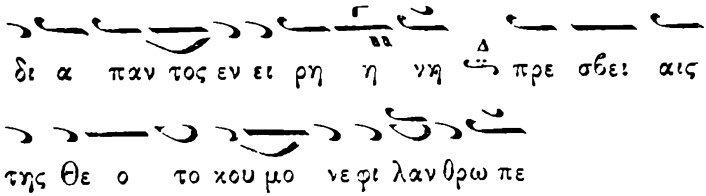 δι α παν τος εν ει ρη η νη Δ πρε σβει αις
της Θε ο το κου μο νε φι λαν θρω πε